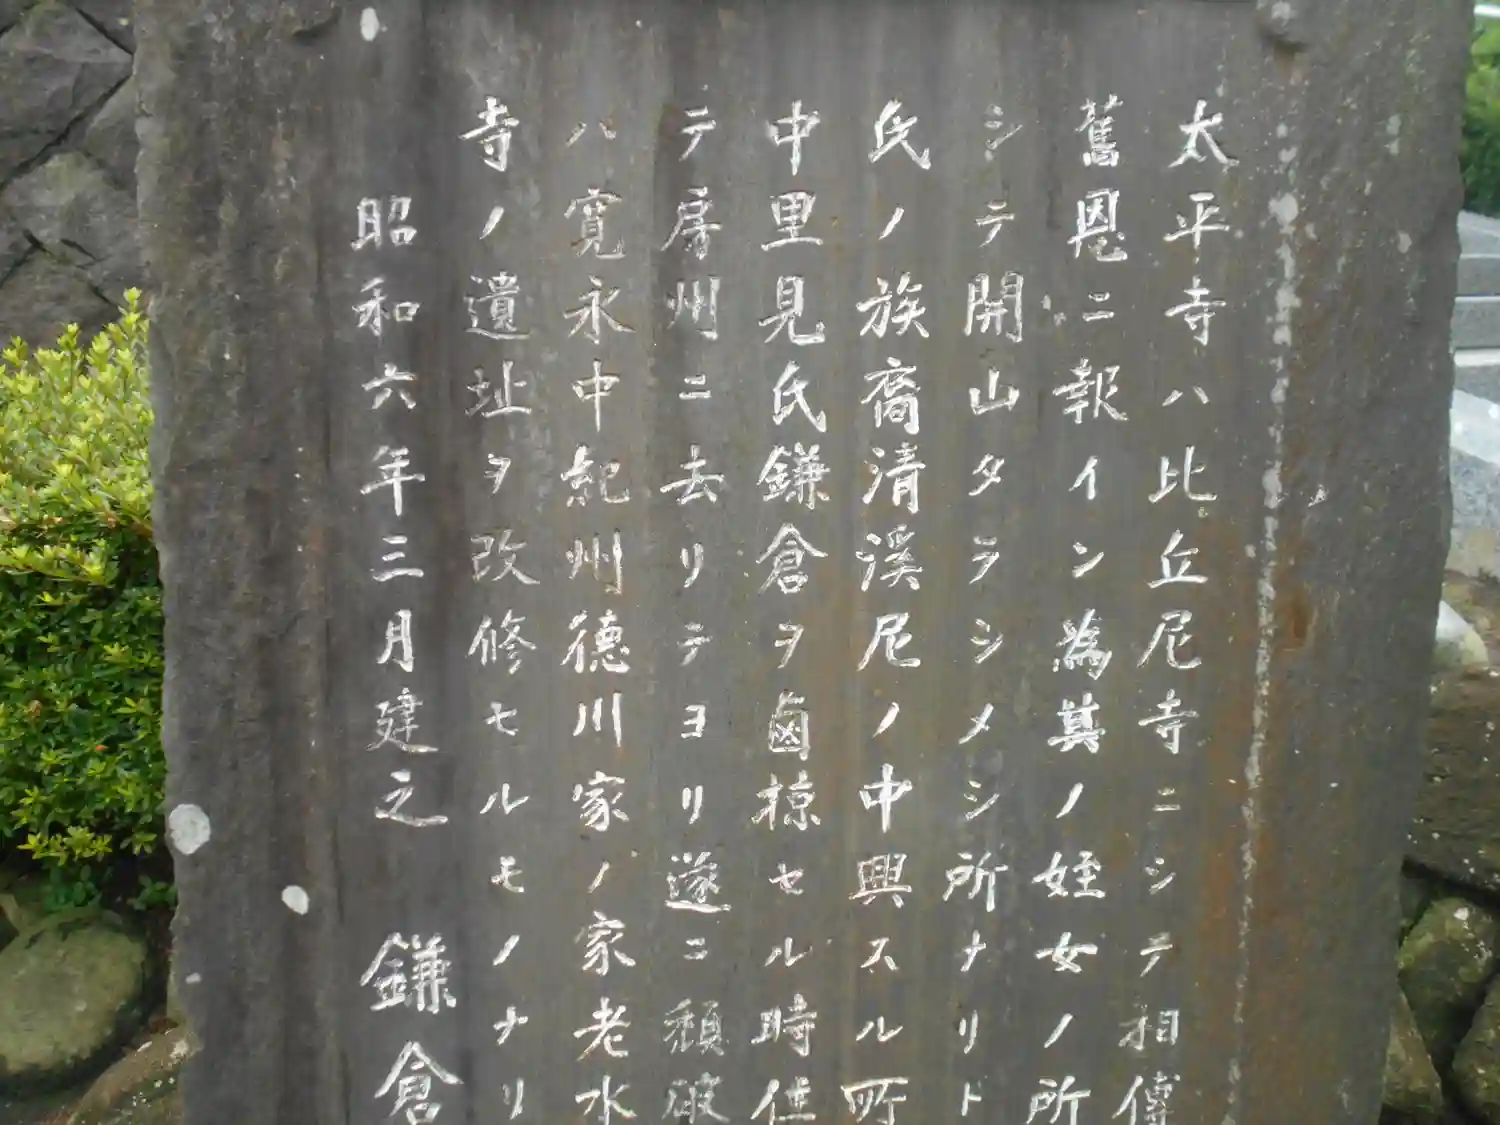 太平寺ハ比丘尼寺ニシテ相傳
舊恩ニ報イン為其ノ姪女ノ所
シテ開山タラシメシ所ナリト
氏ノ族裔清溪尼ノ中興スル所
中里見氏鎌倉ヲ鹵掠セル時住
テ房州ニ去リテヨリ遂ニ頽破
ハ寛永中紀州徳川家ノ家老水
寺ノ遺址ヲ改修セルモノナリ
昭和六年三月建之 鎌倉